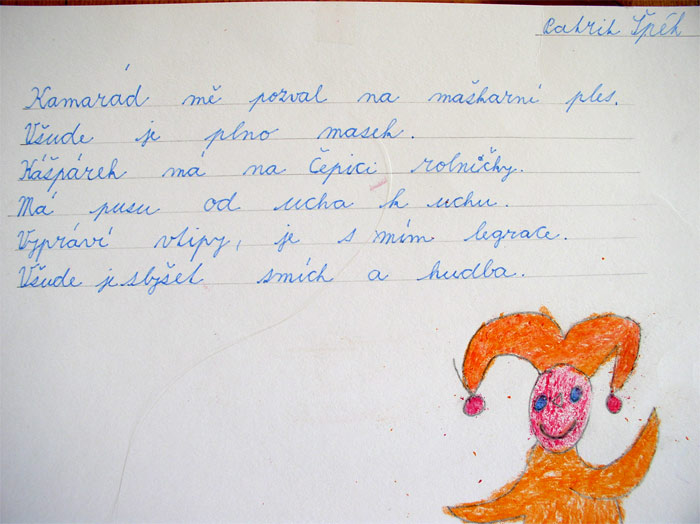 Patrik Špéh
Kamarád mě pozval na maškarní ples.
Všude je plno masek.
Kášpárek má na čepici rolničky.
Má pusu od ucha k uchu.
Vypráví vtipy, je s mím legrace.
Všude je slyšet smích a hudba.